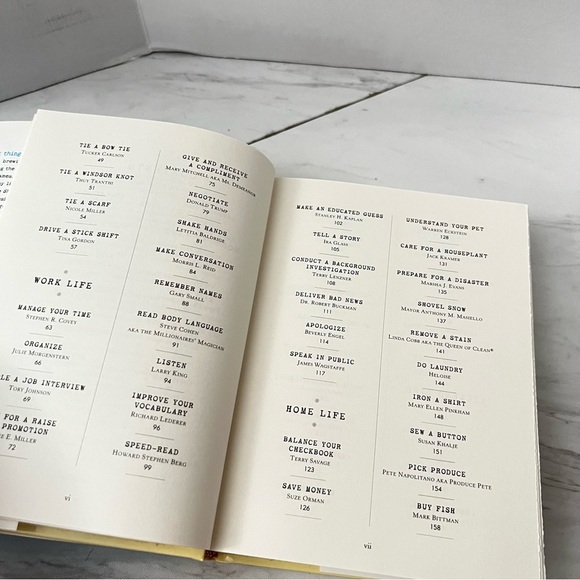 TIE A BOW TIE
TUCKER CARLSON
49
TIE A WINDSOR KNOT
THUY TRANTHI
51
TIE A SCARF
NICOLE MILLER
54
DRIVE A STICK SHIFT
TINA GORDON
57
WORK LIFE
MANAGE YOUR TIME
STEPHEN R. COVEY
63
ORGANIZE
JULIE MORGENSTERN
66
A JOB INTERVIEW
TORY JOHNSON
69
FOR A RAISE
PROMOTION
E. MILLER
72
vi
GIVE AND RECEIVE
A COMPLIMENT
MARY MITCHELL AKA MS. DEMEANOR
75
NEGOTIATE
DONALD TRUMP
79
SHAKE HANDS
LETITIA BALDRIGE
81
MAKE CONVERSATION
MORRIS L. REID
84
REMEMBER NAMES
GARY SMALL
88
READ BODY LANGUAGE
STEVE COHEN
AKA THE MILLIONAIRES' MAGICIAN
91
LISTEN
LARRY KING
94
IMPROVE YOUR
VOCABULARY
RICHARD LEDERER
96
SPEED-READ
HOWARD STEPHEN BERG
99
MAKE AN EDUCATED GUESS
STANLEY H. KAPLAN
102
TELL A STORY
IRA GLASS
105
CONDUCT A BACKGROUND
INVESTIGATION
TERRY LENZNER
108
DELIVER BAD NEWS
DR. ROBERT BUCKMAN
111
APOLOGIZE
BEVERLY ENGEL
114
SPEAK IN PUBLIC
JAMES WAGSTAFFE
117
HOME LIFE
BALANCE YOUR
CHECKBOOK
TERRY SAVAGE
123
SAVE MONEY
SUZE ORMAN
126
UNDERSTAND YOUR PET
WARREN ECKSTEIN
128
CARE FOR A HOUSEPLANT
JACK KRAMER
131
PREPARE FOR A DISASTER
MARSHA J. EVANS
135
SHOVEL SNOW
MAYOR ANTHONY M. MASIELLO
137
REMOVE A STAIN
LINDA COBB AKA THE QUEEN OF CLEAN®
141
DO LAUNDRY
HELOISE
144
IRON A SHIRT
MARY ELLEN PINKHAM
148
SEW A BUTTON
SUSAN KHALJE
151
PICK PRODUCE
PETE NAPOLITANO AKA PRODUCE PETE
154
BUY FISH
MARK BITTMAN
158
vii